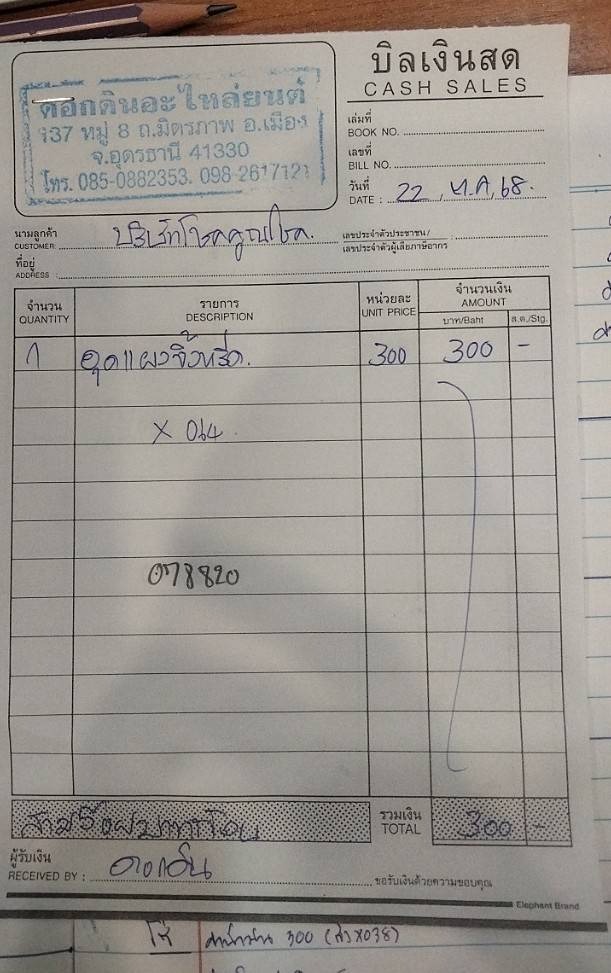 บิลเงินสด
CASH SALES
ดอกดินอะไหล่ยนต์
137 หมู่ 8 ถ.มิตรภาพ อ.เมือง
จ.อุดรธานี 41330
โทร. 085-0882353. 098-2617121
เล่มที่
BOOK NO.
เลขที่
BILL NO.
วันที่
DATE : 22 / ต.ค, 68.
นามลูกค้า
CUSTOMER: บริษัทโชคคูณโชค.
เลขประจำตัวประชาชน/
เลขประจำตัวผู้เสียภาษีอากร :
ที่อยู่
ADDRESS :
จำนวน รายการ หน่วยละ จำนวนเงิน
QUANTITY DESCRIPTION UNIT PRICE AMOUNT
บาท/Baht ส.ต./Stg.
1 300 300 -
X 064
078820
รวมเงิน
TOTAL 300 -
สามร้อยบาทถ้วน
ผู้รับเงิน
RECEIVED BY : ดอกดิน
ขอรับเงินด้วยความขอบคุณ
Elephant Brand
300 (สิวX038)